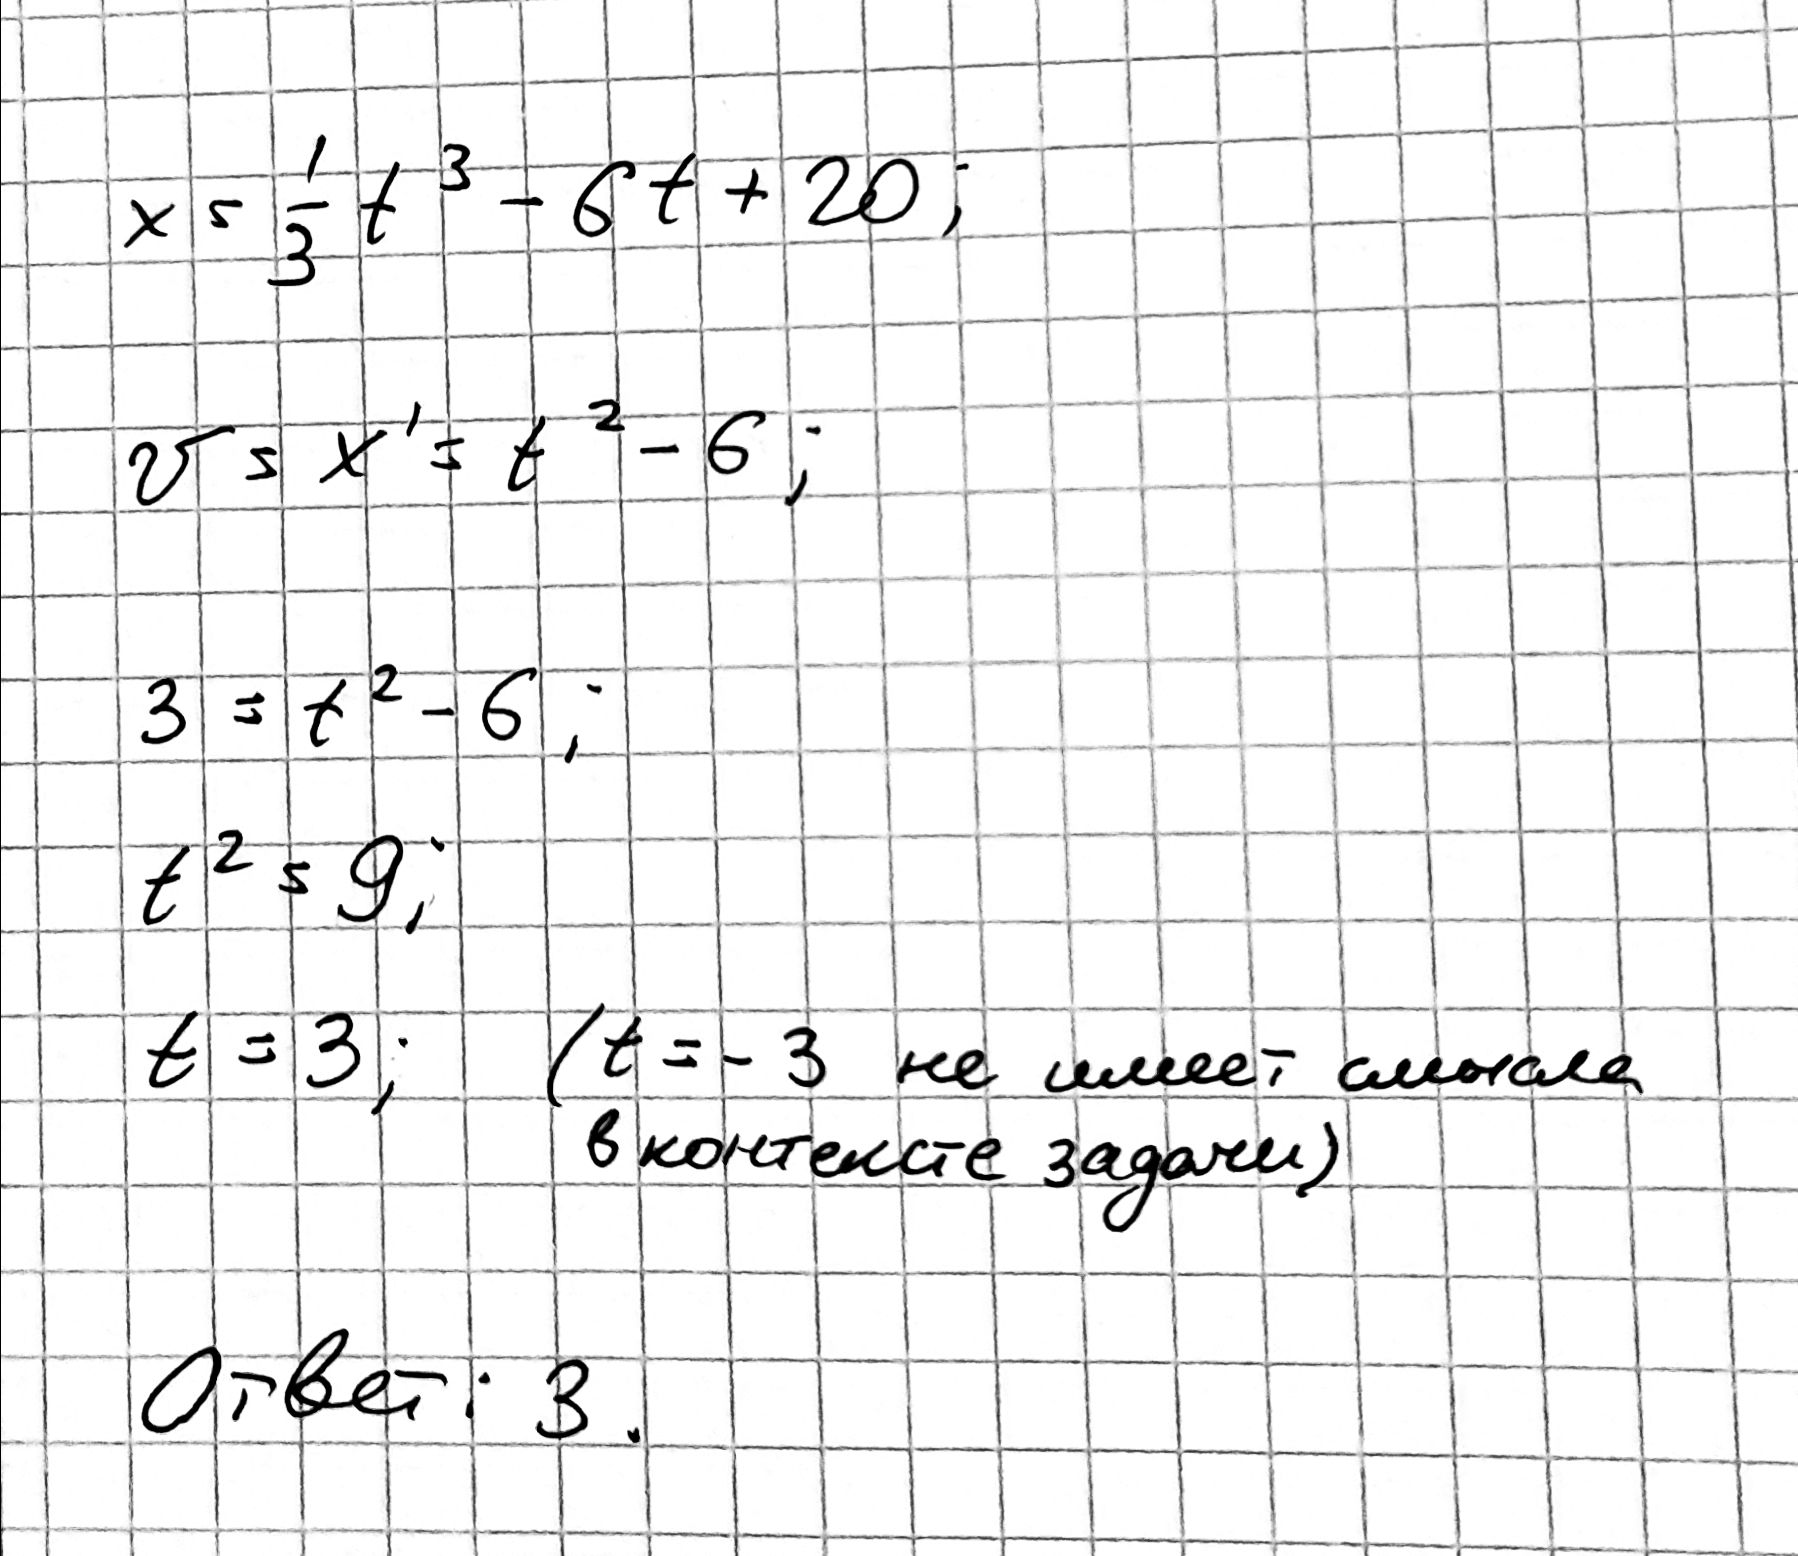 x = 1/3 t³ - 6t + 20;
v = x' = t² - 6;
3 = t² - 6;
t² = 9;
t = 3; (t = - 3 не имеет смысла
в контексте задачи)
Ответ: 3.